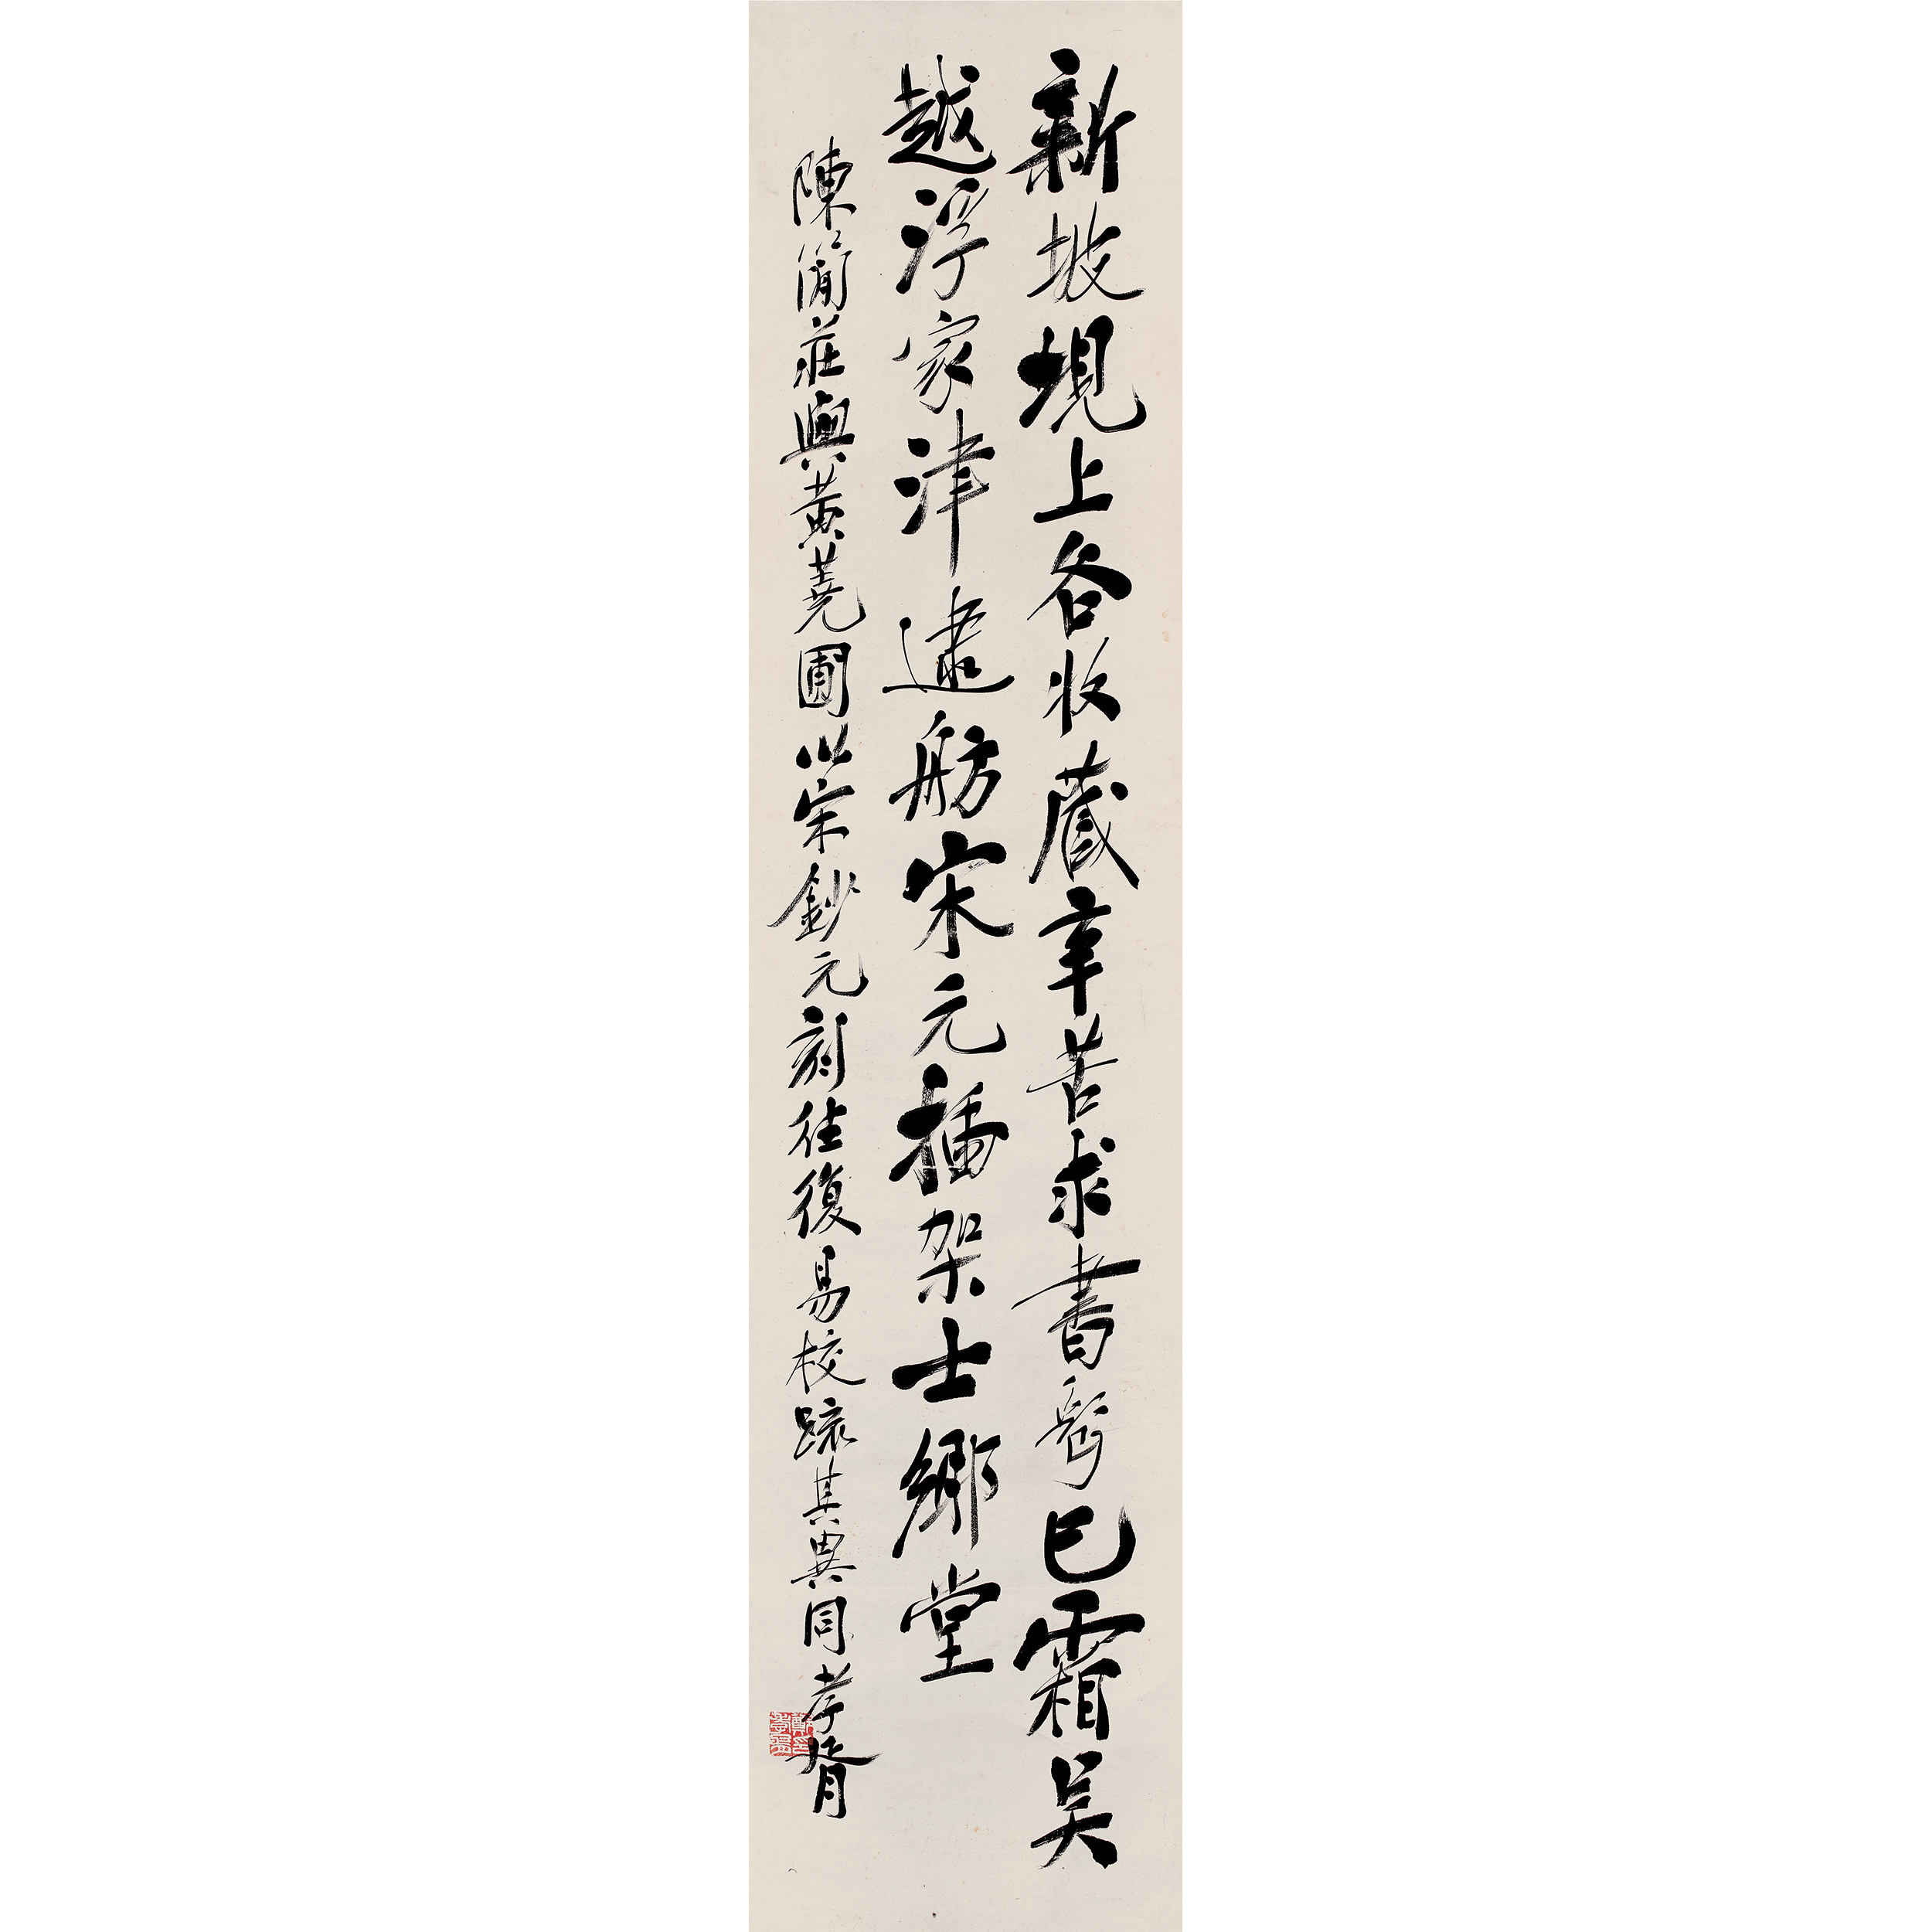 新坡上各收藏辛苦求書鬢已霜吳
越浮家津逮舫宋元插架士鄉堂
陳簡莊與黃蕘圃以宋鈔元刻往復易校疏其異同孝胥
鄭印孝胥